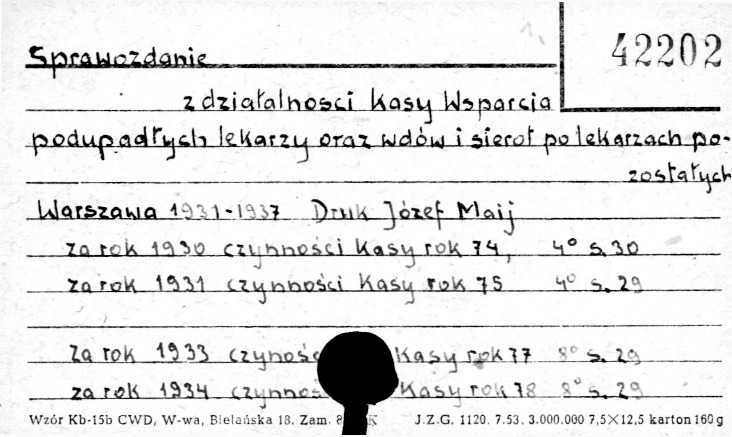 1.
42202
Sprawozdanie
z działalności Kasy Wsparcia
podupadłych lekarzy oraz wdów i sierot po lekarzach po-
zostałych
Warszawa 1931-1937 Druk Józef Maij
za rok 1930 czynności Kasy rok 74, 4° s. 30
za rok 1931 czynności Kasy rok 75 4° s. 29
za rok 1933 Kasy rok 77 8° s. 29
za rok 1934 Kasy rok 78 8° s. 29
Wzór Kb-15b CWD, W-wa, Bielańska 18. Zam. J.Z.G. 1120. 7.53. 3.000.000 7,5×12,5 karton 160 g